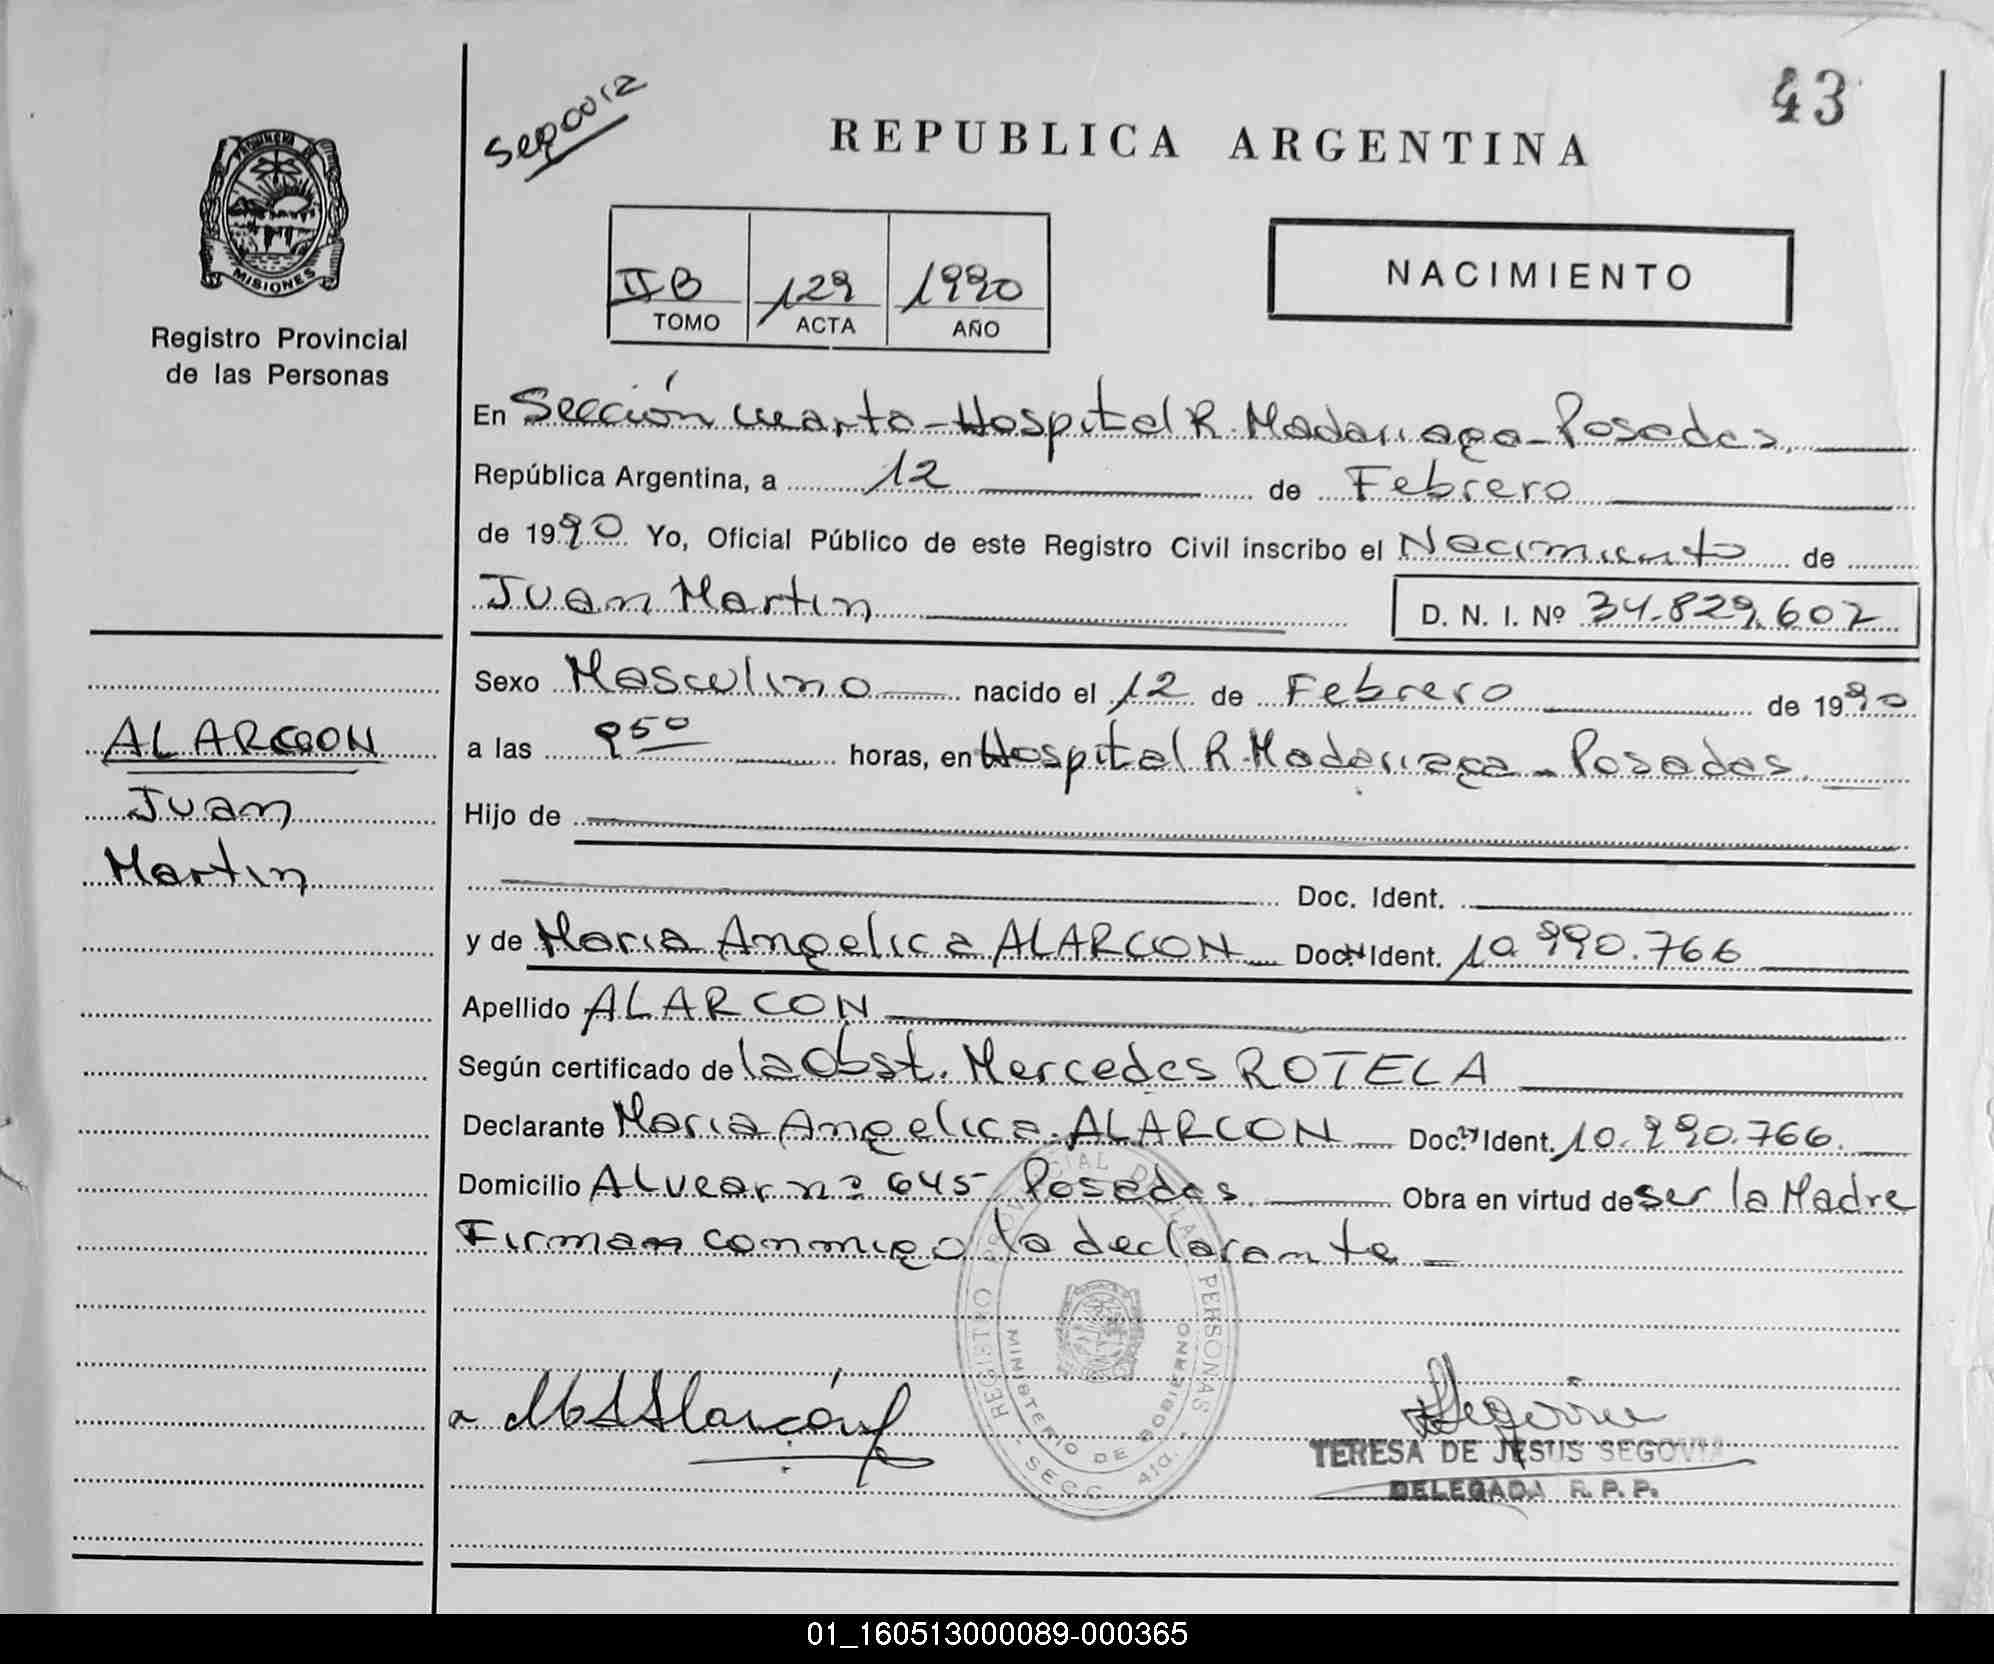 43
REPUBLICA ARGENTINA
PROVINCIA DE
MISIONES
Registro Provincial
de las Personas
IIB 129 1990
TOMO ACTA AÑO
NACIMIENTO
En Sección cuarta - Hospital R. Madariaga - Posadas,
República Argentina, a 12 de Febrero
de 1990 Yo, Oficial Público de este Registro Civil inscribo el Nacimiento de
Juan Martin D. N. I. Nº 34.829.602
Sexo Masculino nacido el 12 de Febrero de 1990
ALARCON
Juan
Martin
a las 9 50 horas, en Hospital R. Madariaga - Posadas.
Hijo de
Doc. Ident.
y de Maria Angelica ALARCON Doc. Nº Ident. 10.990.766
Apellido ALARCON
Según certificado de la Obst. Mercedes ROTELA
Declarante Maria Angelica ALARCON Doc. Ident. 10.990.766.
Domicilio Alvear nº 645 Posadas. Obra en virtud de ser la Madre
Firman conmigo la declarante
REGISTRO PROVINCIAL DE LAS PERSONAS
MINISTERIO DE GOBIERNO
- SECC. 4ta. -
TERESA DE JESUS SEGOVIA
DELEGADA R. P. P.
01_160513000089-000365